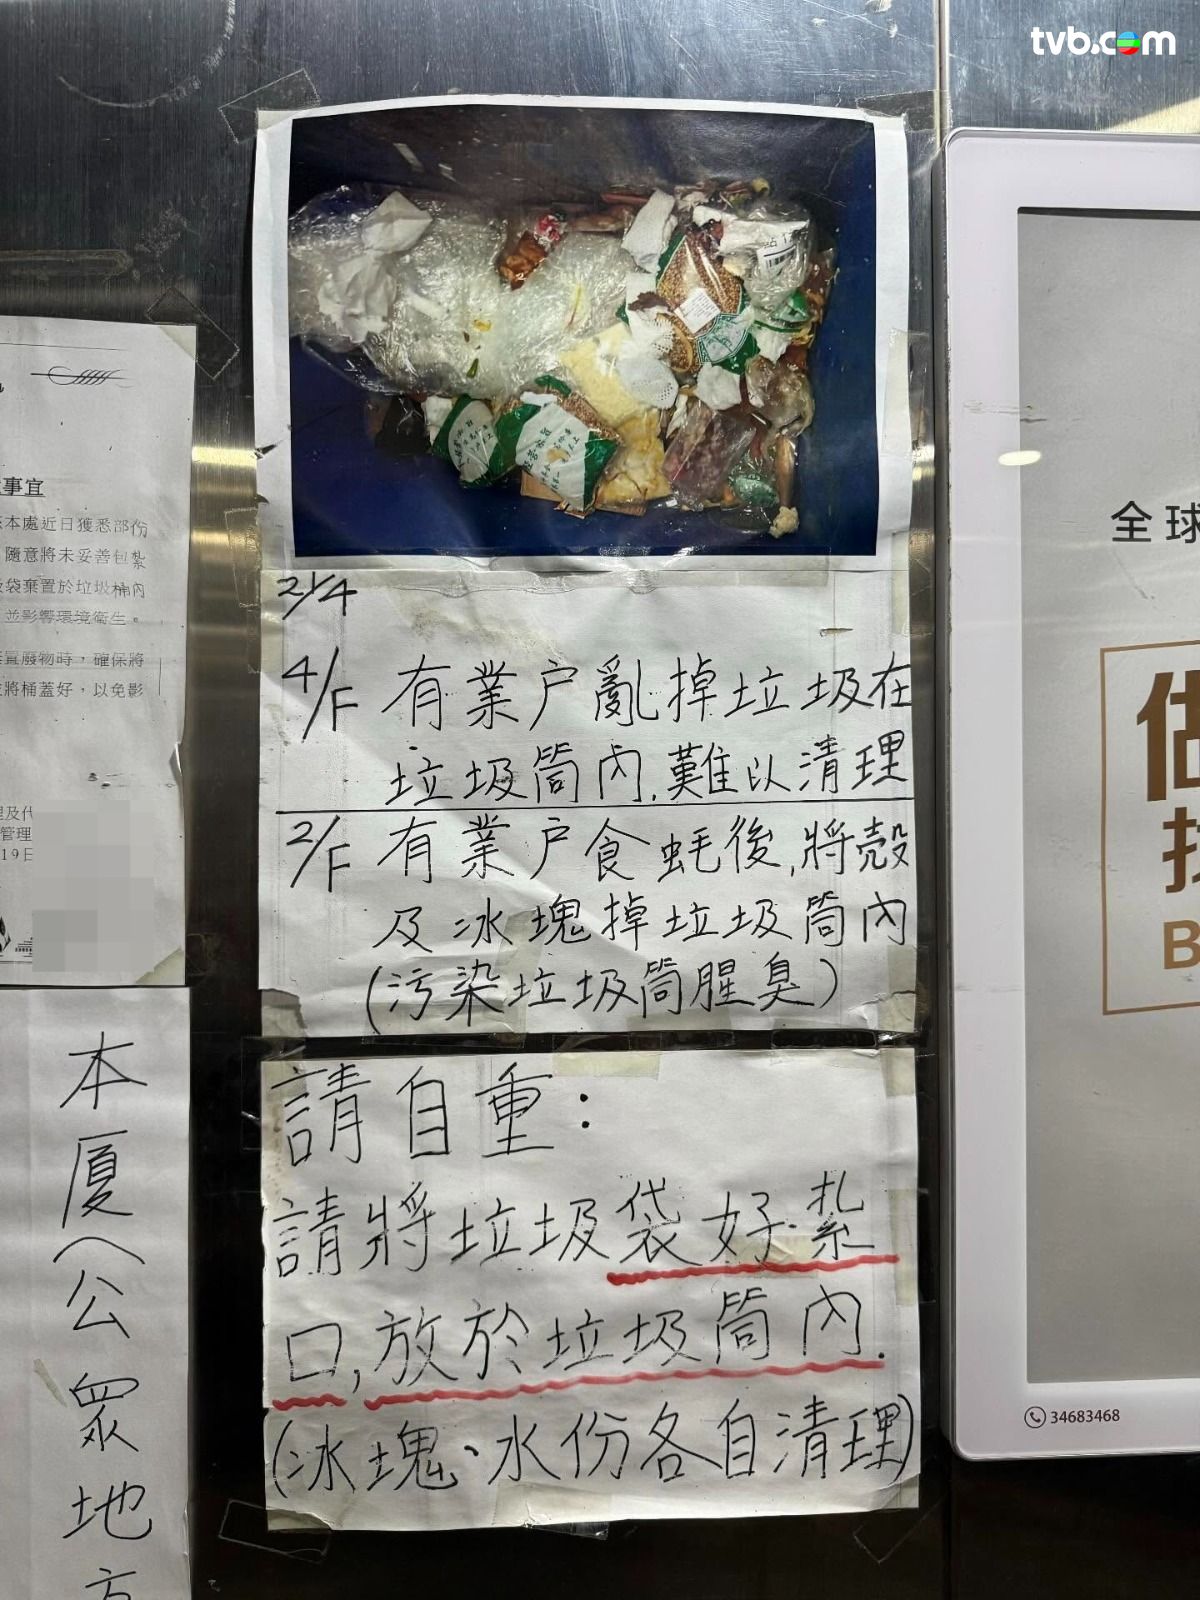 tvb.com
21/4
4/F 有業户亂掉垃圾在
垃圾筒內,難以清理
2/F 有業户食蚝後,將殼
及冰塊掉垃圾筒內
(污染垃圾筒腥臭)
請自重:
請將垃圾袋好紮
口,放於垃圾筒內.
(冰塊、水份各自清理)
事宜
本處近日獲悉部份
隨意將未妥善包紮
袋棄置於垃圾桶內
並影響環境衛生。
置廢物時,確保將
將桶蓋好,以免影
理及代
管理
19日
本厦(公眾地方
全球
做
B
34683468